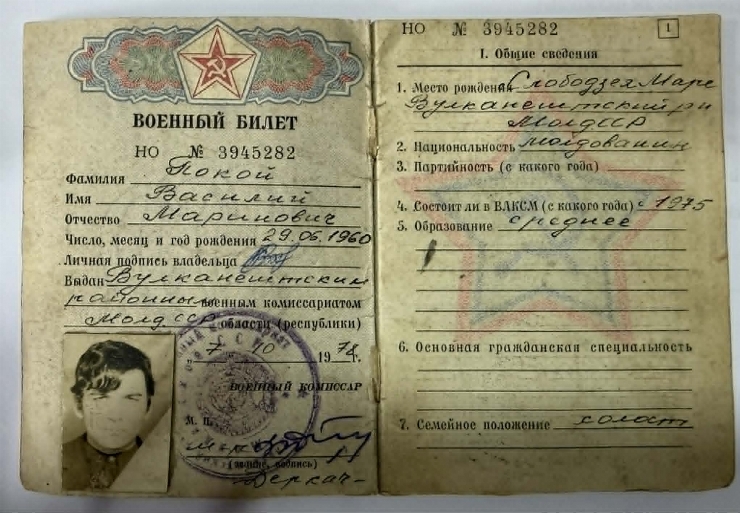 ВОЕННЫЙ БИЛЕТ
НО № 3945282
Фамилия Покой
Имя Василий
Отчество Маринович
Число, месяц и год рождения 29.06.1960
Личная подпись владельца
Выдан Вулканештским
районным военным комиссариатом
Молд. ССР области (республики)
7 10 1978 г.
ВОЕННЫЙ КОМИССАР
М. П.
(звание, подпись)
Деркач
НО № 3945282
1
I. Общие сведения
1. Место рождения Слободзея Маре
Вулканештский р-н
МолдССР
2. Национальность молдованин
3. Партийность (с какого года)
4. Состоит ли в ВЛКСМ (с какого года) с 1975
5. Образование среднее
6. Основная гражданская специальность
7. Семейное положение холост